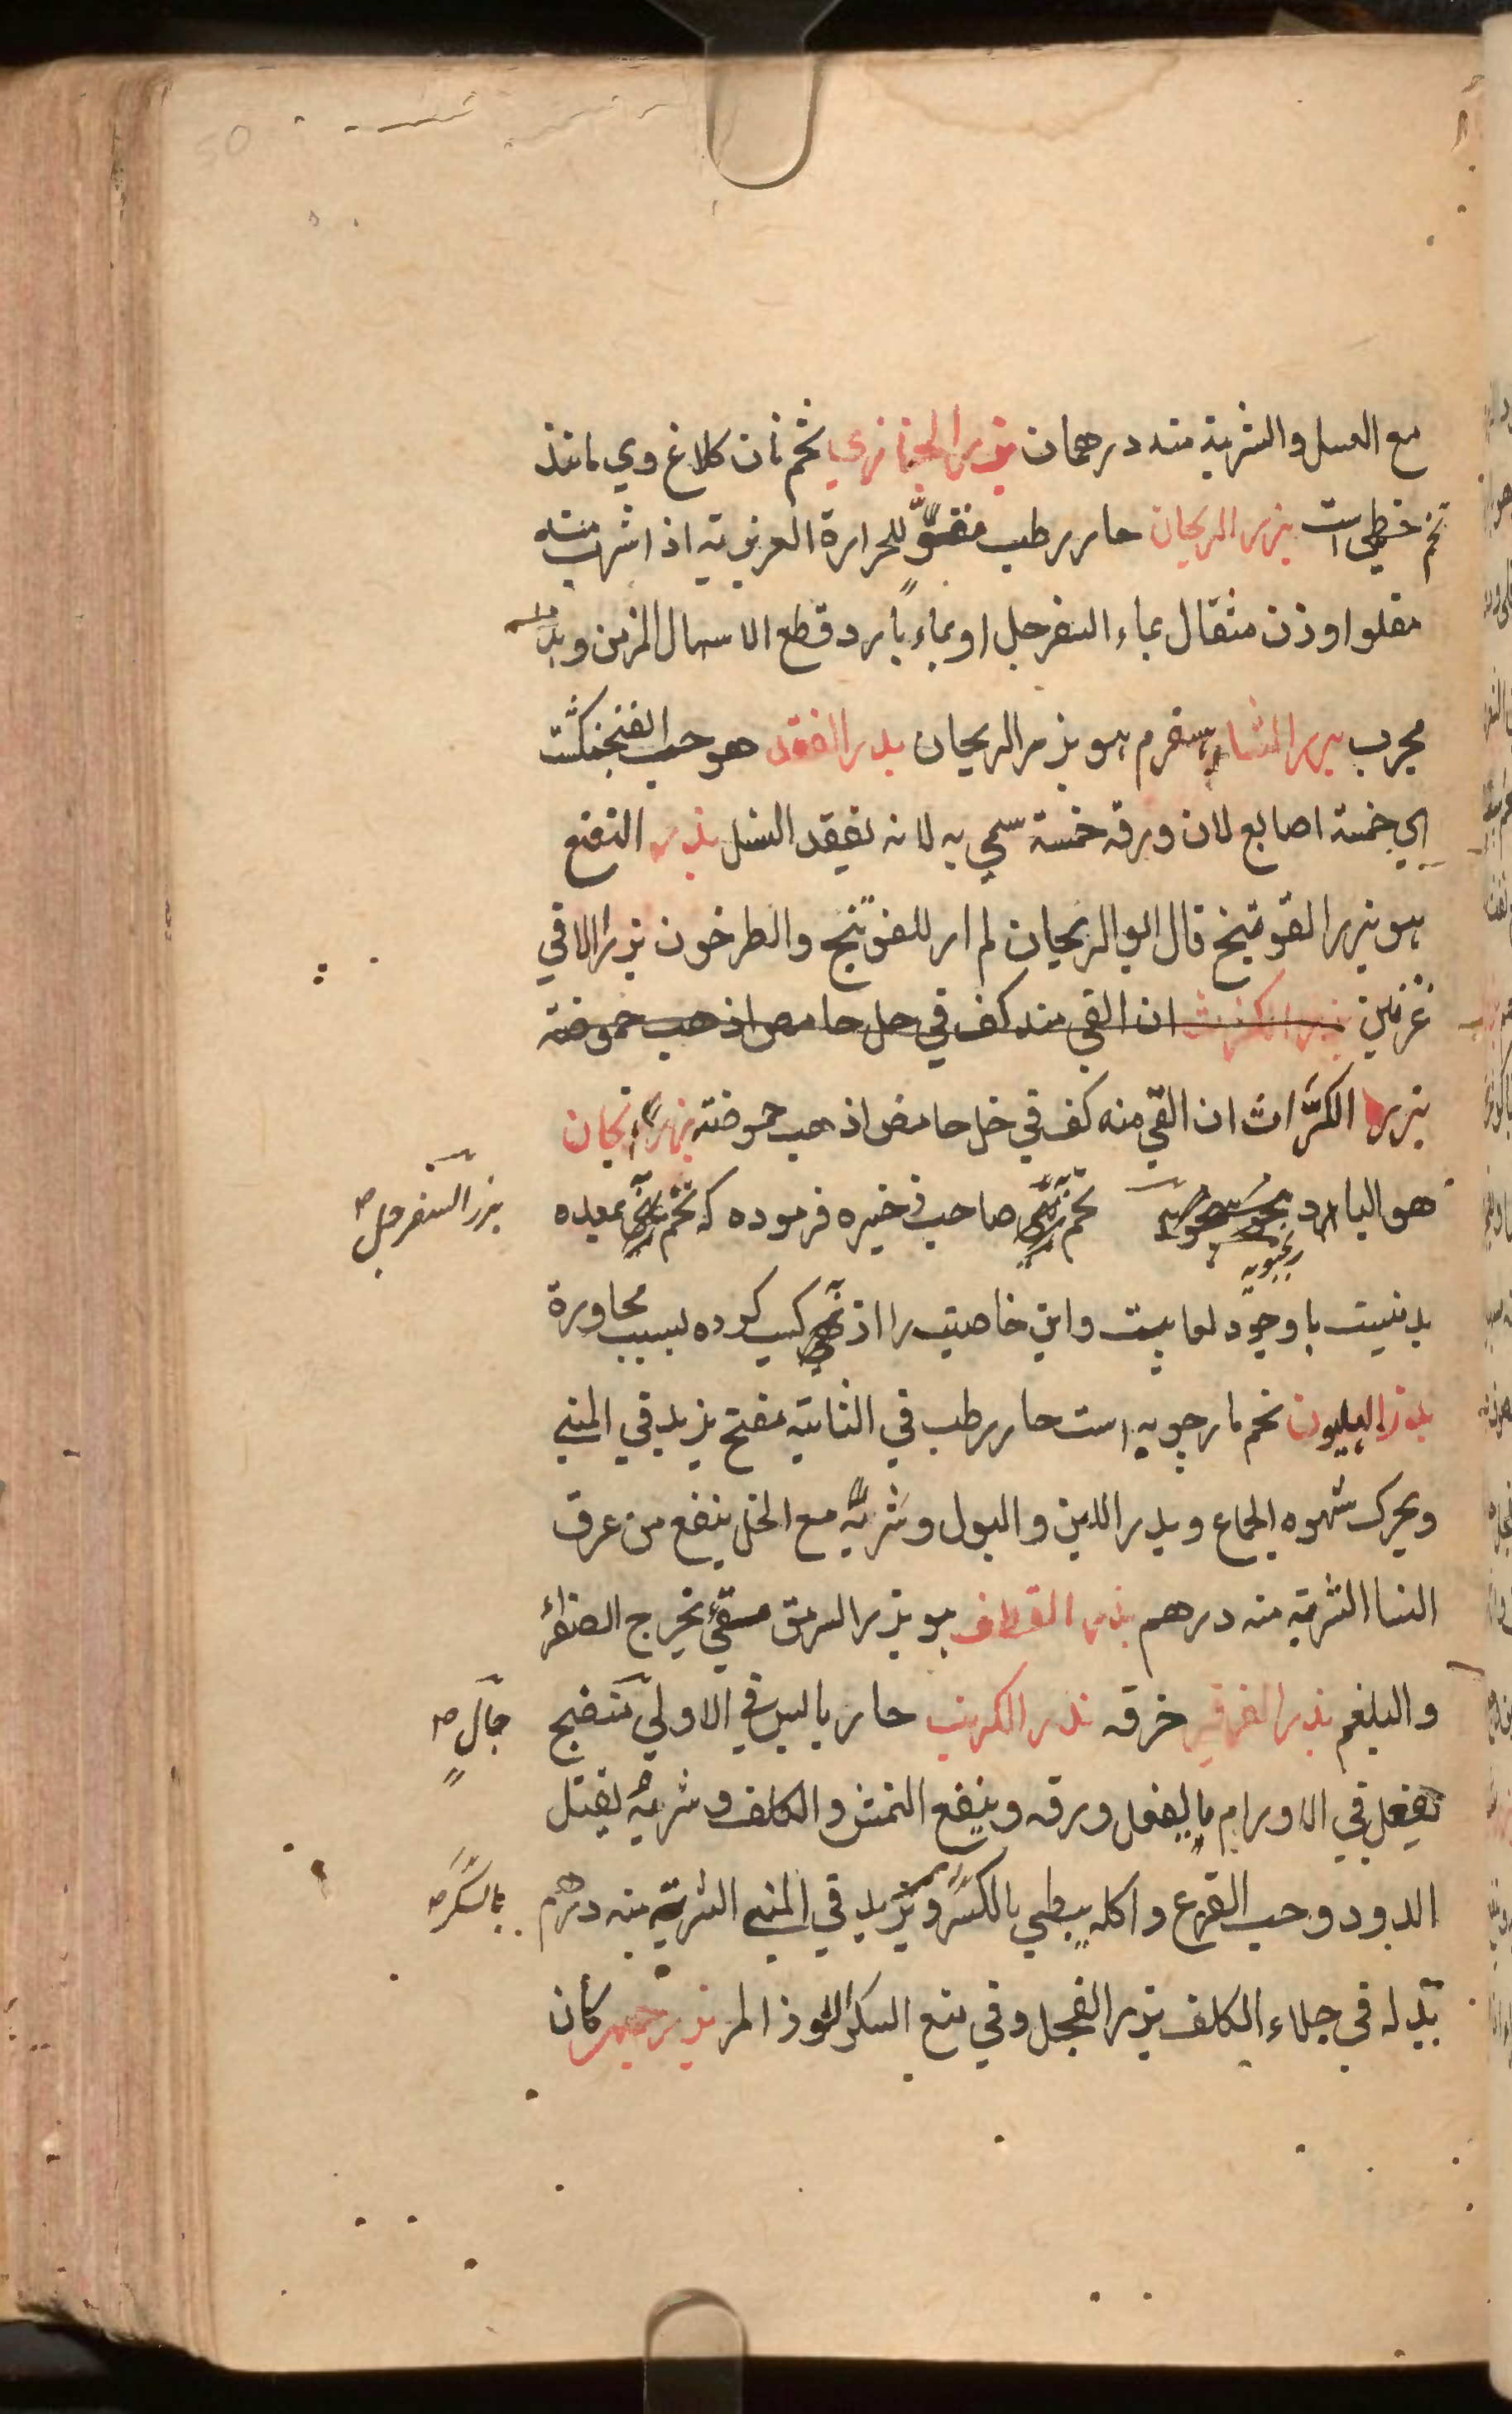 مع العسل والشربة منه درهمان بزر الخبازي تخم نان كلاغ وي مانند
تخم خطمي است بزر الريحان حار رطب مقوٍّ للحرارة الغريزية اذا شرب منه
مقلوا وزن مثقال بماء السفرجل او بماء بارد قطع الاسهال المزمن وبدله
مجرب بزر الشاهسفرم هو بزر الريحان بذر الفقد هو حب الفنجنكشت
اي خمسة اصابع لان ورقه خمسة سمي به لانه يفقد النسل بذر النعنع
هو بزر الفوتنج قال ابو الريحان لم ار للفوتنج والطرخون بزرا الا في
غزنين بزر الكراث ان القي منه كف في خل حامض اذهب حموضته
بزر الكرّاث ان القي منه كف في خل حامض اذهب حموضته
هو البادر تخم صاحب ذخيره فرموده كه تخم بمعده
بزر السفرجل صح
بد نيست با وجود لعابيت واين خاصيت را از كسب كرده بسبب مجاورة
بذر الهليون تخم مارچوبه است حار رطب في الثانية مفتح يزيد في المني
ويحرك شهوه الجماع ويدر اللبن والبول وشربه مع الخل ينفع من عرق
النسا الشربة منه درهم بذر القطف هو بزر السرمق مقيّء يخرج الصفراء
والبلغم بذر الفرفير خرفه بذر الكرنب حار يابس في الاولي منضج
جال صح
يفعل في الاورام ما يفعل ورقه وينفع النمش والكلف وشربه يقتل
الدود وحب القرع واكله يبطي بالسكر ويزيد في المني الشربة منه درهم
بالسكر صح
بدله في جلاء الكلف بزر الفجل وفي منع السكر اللوز المر كان